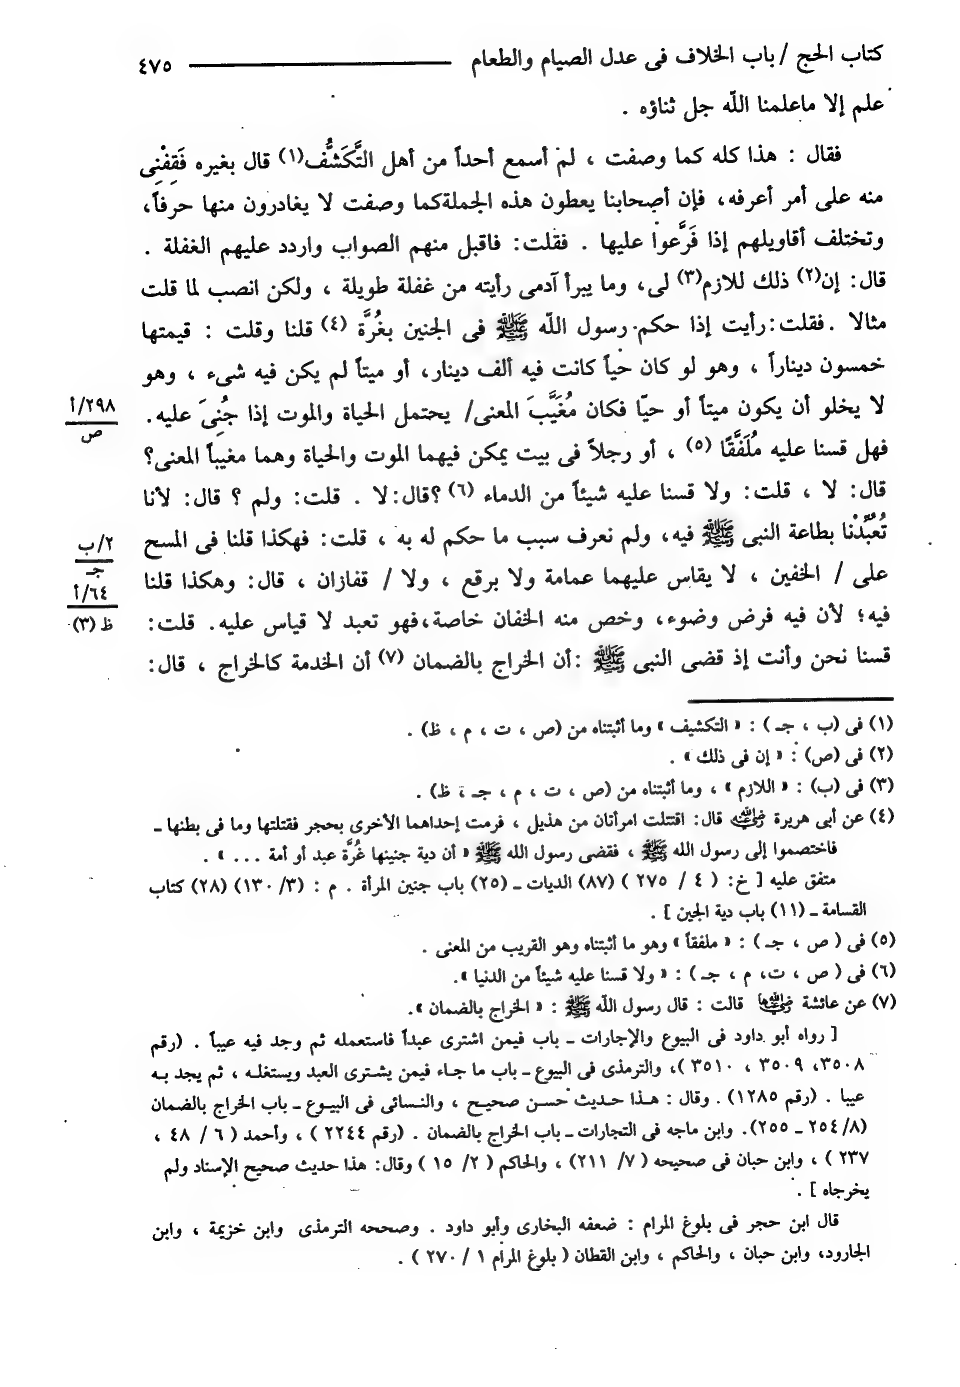 كتاب الحج / باب الخلاف فى عدل الصيام والطعام ــــــــــــــ ٤٧٥
علم إلا ماعلمنا اللّه جل ثناؤه .
فقال : هذا كله كما وصفت ، لم أسمع أحداً من أهل التَّكَشُّف(١) قال بغيره فَقِفْنِى
منه على أمر أعرفه، فإن أصحابنا يعطون هذه الجملة كما وصفت لا يغادرون منها حرفاً،
وتختلف أقاويلهم إذا فَرَّعوا عليها . فقلت: فاقبل منهم الصواب واردد عليهم الغفلة .
قال: إن(٢) ذلك للازم(٣) لى، وما يبرأ آدمى رأيته من غفلة طويلة ، ولكن انصب لما قلت
مثالا . فقلت: رأيت إذا حكم رسول اللّه ﷺ فى الجنين بغُرَّة (٤) قلنا وقلت : قيمتها
خمسون ديناراً ، وهو لو كان حياً كانت فيه ألف دينار، أو ميتاً لم يكن فيه شىء ، وهو
لا يخلو أن يكون ميتاً أو حيّا فكان مُغَيَّبَ المعنى/ يحتمل الحياة والموت إذا جُنِىَ عليه.
٢٩٨/أ
ص
فهل قسنا عليه مُلَفَّقًا (٥) ، أو رجلاً فى بيت يمكن فيهما الموت والحياة وهما مغيباً المعنى؟
قال: لا ، قلت: ولا قسنا عليه شيئاً من الدماء (٦) ؟قال: لا . قلت: ولم ؟ قال: لأنا
تُعُبِّدْنا بطاعة النبى ﷺ فيه، ولم نعرف سبب ما حكم له به ، قلت: فهكذا قلنا فى المسح
٢/ب
جـ
على / الخفين ، لا يقاس عليهما عمامة ولا برقع ، ولا / قفازان ، قال: وهكذا قلنا
٦٤/أ
ظ (٣)
فيه؛ لأن فيه فرض وضوء، وخص منه الخفان خاصة،فهو تعبد لا قياس عليه. قلت:
قسنا نحن وأنت إذ قضى النبى ﷺ :أن الخراج بالضمان (٧) أن الخدمة كالخراج ، قال:
(١) فى (ب ، جـ ) : « التكشيف » وما أثبتناه من (ص ، ت ، م ، ظ) .
(٢) فى (ص) : « إن فى ذلك » .
(٣) فى (ب) : « اللازم » ، وما أثبتناه من (ص ، ت ، م ، جـ ، ظ) .
(٤) عن أبى هريرة رضي الله عنه قال: اقتتلت امرأتان من هذيل ، فرمت إحداهما الأخرى بحجر فقتلتها وما فى بطنها ــ
فاختصموا إلى رسول الله ﷺ ، فقضى رسول الله ﷺ « أن دية جنينها غُرَّة عبد أو أمة ... » .
متفق عليه [ خ: ( ٤ / ٢٧٥ ) (٨٧) الديات ــ (٢٥) باب جنين المرأة . م : (٣/ ١٣٠) (٢٨) كتاب
القسامة ــ (١١) باب دية الجين ] .
(٥) فى ( ص ، جـ ) : « ملفقاً » وهو ما أثبتناه وهو القريب من المعنى .
(٦) فى ( ص ، ت، م ، جـ ) : « ولا قسنا عليه شيئاً من الدنيا ».
(٧) عن عائشة رضي الله عنها قالت : قال رسول اللّه ﷺ : « الخراج بالضمان ».
[ رواه أبو داود فى البيوع والإجارات ــ باب فيمن اشترى عبداً فاستعمله ثم وجد فيه عيباً . (رقم
٣٥٠٨، ٣٥٠٩ ، ٣٥١٠ )، والترمذى فى البيوع ــ باب ما جـاء فيمن يشـترى العبد ويستغلـه ، ثم يجد بـه
عيبا . (رقم ١٢٨٥) . وقال : هـذا حديث حسن صحيح ، والنسائى فى البيـوع ــ باب الخراج بالضمان
(٨/ ٢٥٤ ــ ٢٥٥). وابن ماجه فى التجارات ــ باب الخراج بالضمان . (رقم ٢٢٤٤ ) ، وأحمد ( ٦ / ٤٨ ،
٢٣٧ ) ، وابن حبان فى صحيحه ( ٧/ ٢١١) ، والحاكم ( ٢/ ١٥ ) وقال: هذا حديث صحيح الإسناد ولم
يخرجاه ] .
قال ابن حجر فى بلوغ المرام : ضعفه البخارى وأبو داود . وصححه الترمذى وابن خزيمة ، وابن
الجارود، وابن حبان ، والحاكم ، وابن القطان ( بلوغ المرام ١ / ٢٧٠ ) .